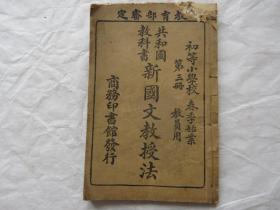 教育部審定
初等小學校 春季始業
第三冊 教員用
共和國
教科書
新國文教授法
商務印書館發行